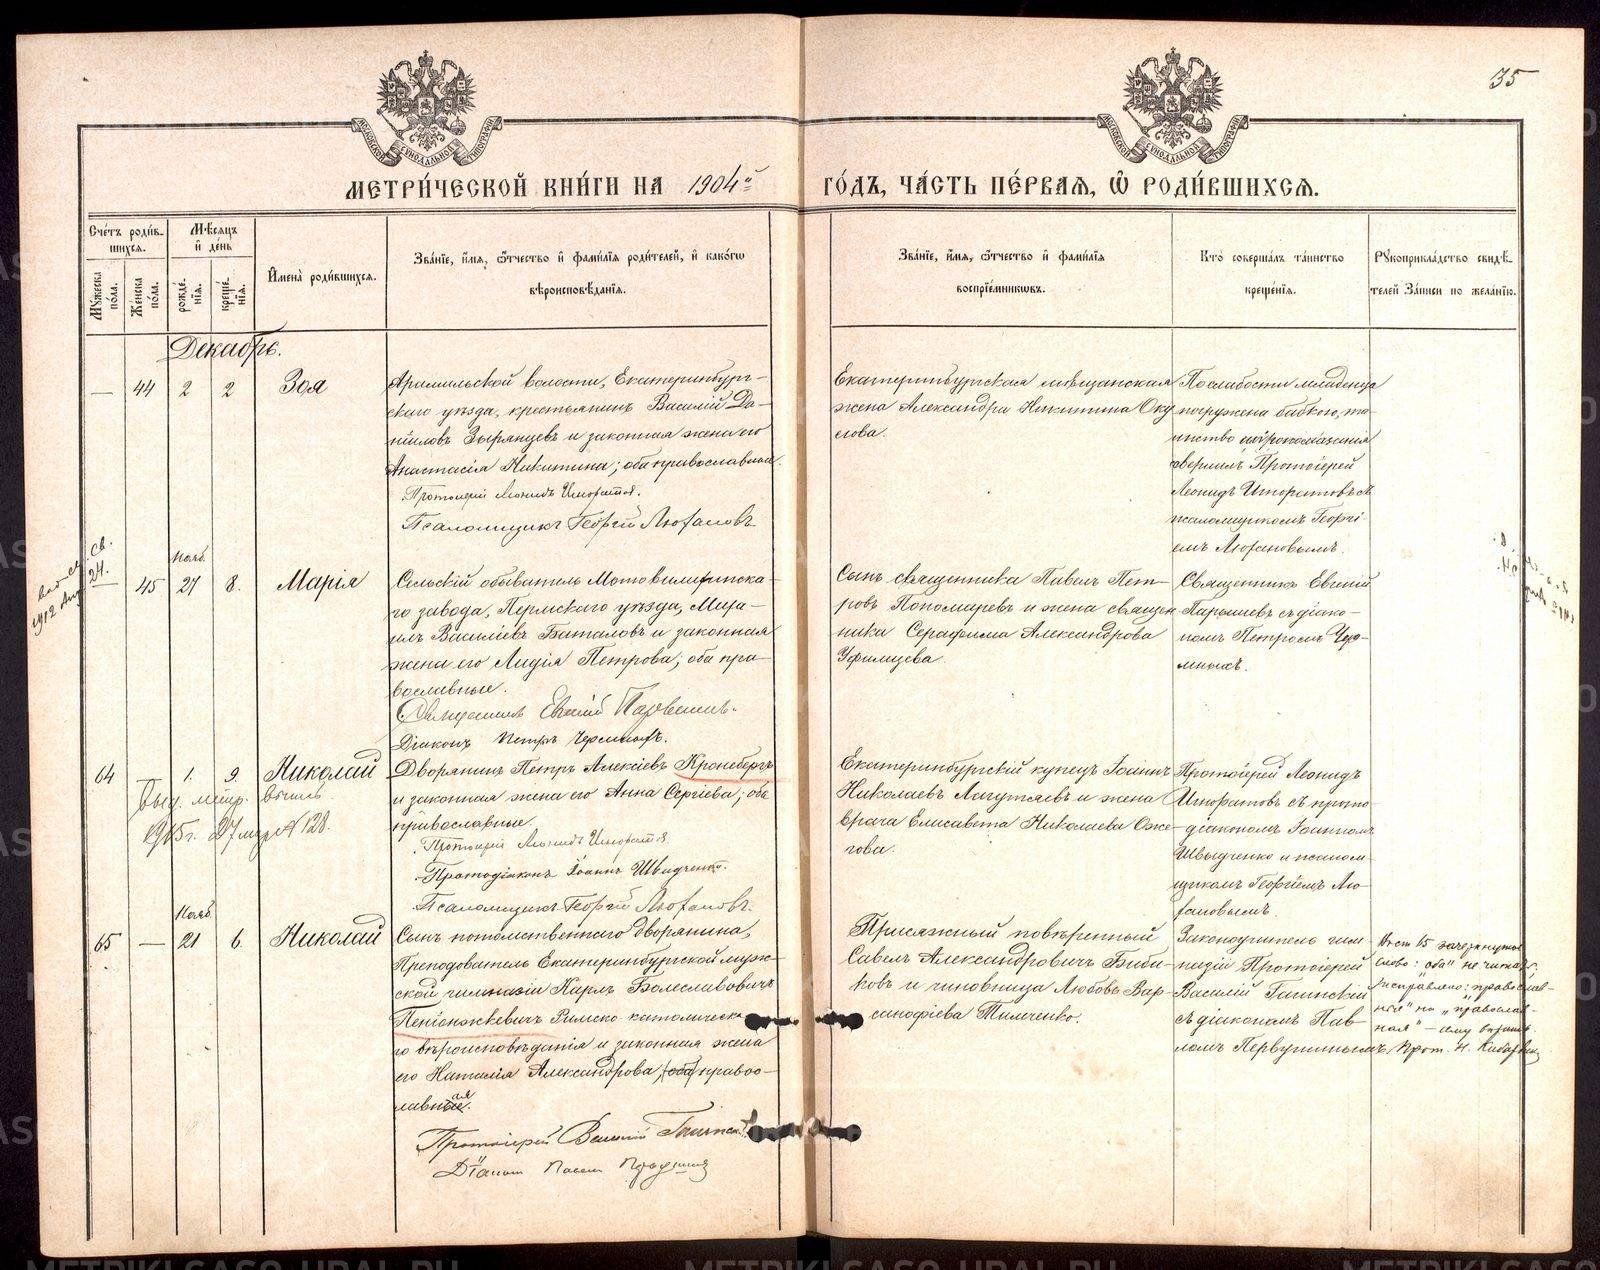 35
МЕТРИ́ЧЕСКОЙ КНИ́ГИ НА 1904й ГО́ДЪ, ЧА́СТЬ ПЕ́РВАѦ, Ѽ РОДИ́ВШИХСѦ.
Сче́тъ роди́в-
шихсѧ.
Мꙋ́жеска по́ла.
Же́нска по́ла.
Мѣ́сѧцъ и҆ де́нь
рожде́-
нїѧ.
креще́-
нїѧ.
И҆мена̀ роди́вшихсѧ.
Зва́нїе, и҆́мѧ, ѻ҆́тчество и҆ фами́лїѧ роди́телей, и҆ како́гѡ
вѣроисповѣ́данїѧ.
Зва́нїе, и҆́мѧ, ѻ҆́тчество и҆ фами́лїѧ
воспрїе́мникѡвъ.
Кто̀ соверша́лъ та́инство
креще́нїѧ.
Рꙋкоприкла́дство свидѣ́-
телей За́писи по жела́нїю.
Декабрь.
— 44 2 2 Зоя
Арамильской волости, Екатеринбург-
скаго уѣзда, крестьянинъ Василій Да-
ниловъ Зырянцевъ и законная жена его
Анастасія Никитина; оба православные.
Протоіерей Леонидъ Игноратовъ.
Псаломщикъ Георгій Люхановъ
Екатеринбургская мѣщанская
жена Александра Никитина Оку
лова.
По слабости младенца
погружена бабкою, та-
инство миропомазанія
совершилъ Протоіерей
Леонидъ Игноратовъ съ
псаломщикомъ Георгі-
емъ Люхановымъ.
Нояб.
— 45 27 8. Марія
Сельскій обыватель Мотовилихинска-
го завода, Пермскаго уѣзда, Миха-
илъ Васильевъ Баталовъ и законная
жена его Лидія Петрова; оба пра-
вославные.
Священникъ Евгеній
Діаконъ Петръ
Сынъ священника Павелъ Пет-
ровъ Пономаревъ и жена священ-
ника Серафима Александрова
Уфимцева.
Священникъ Евгеній
съ діако-
номъ Петромъ Чер-
мныхъ.
64 — 1. 9. Николай
Выд. метр. выпись
1915 г. 27 №128.
Дворянинъ Петръ Алексіевъ Кронебергъ
и законная жена его Анна Сергіева; оба
православные.
Протоіерей Леонидъ Игноратовъ
Протодіаконъ Іоаннъ Швидченко.
Псаломщикъ Георгій Люхановъ.
Екатеринбургскій купецъ Іоаннъ
Николаевъ Лагутяевъ и жена
врача Елисавета Николаева Оже-
гова.
Протоіерей Леонидъ
Игноратовъ съ прото-
діакономъ Іоанномъ
Швыдченко и псалом-
щикомъ Георгіемъ Лю-
хановымъ.
Нояб.
65 — 21 6. Николай
Сынъ потомственнаго дворянина,
Преподаватель Екатеринбургской муж-
ской гимназіи Карлъ Болеславовичъ
Пеніонжкевичъ Римско-католическа-
го вѣроисповѣданія и законная жена
его Наталія Александрова, (оба) правос-
лавныя.
Протоіерей Василій
Діаконъ Павелъ
Присяжный повѣренный
Савелъ Александровичъ Биби-
ковъ и чиновница Любовь Вар-
санофіева Тимченко.
Законоучитель гим-
назіи Протоіерей
Василій Гагинскій
съ діакономъ Пав-
ломъ Первушинымъ
зачеркнутое
слово: "оба" не читать.
Исправлено: православ-
на "православ-
ная" — вѣрить.
Прот. Н.